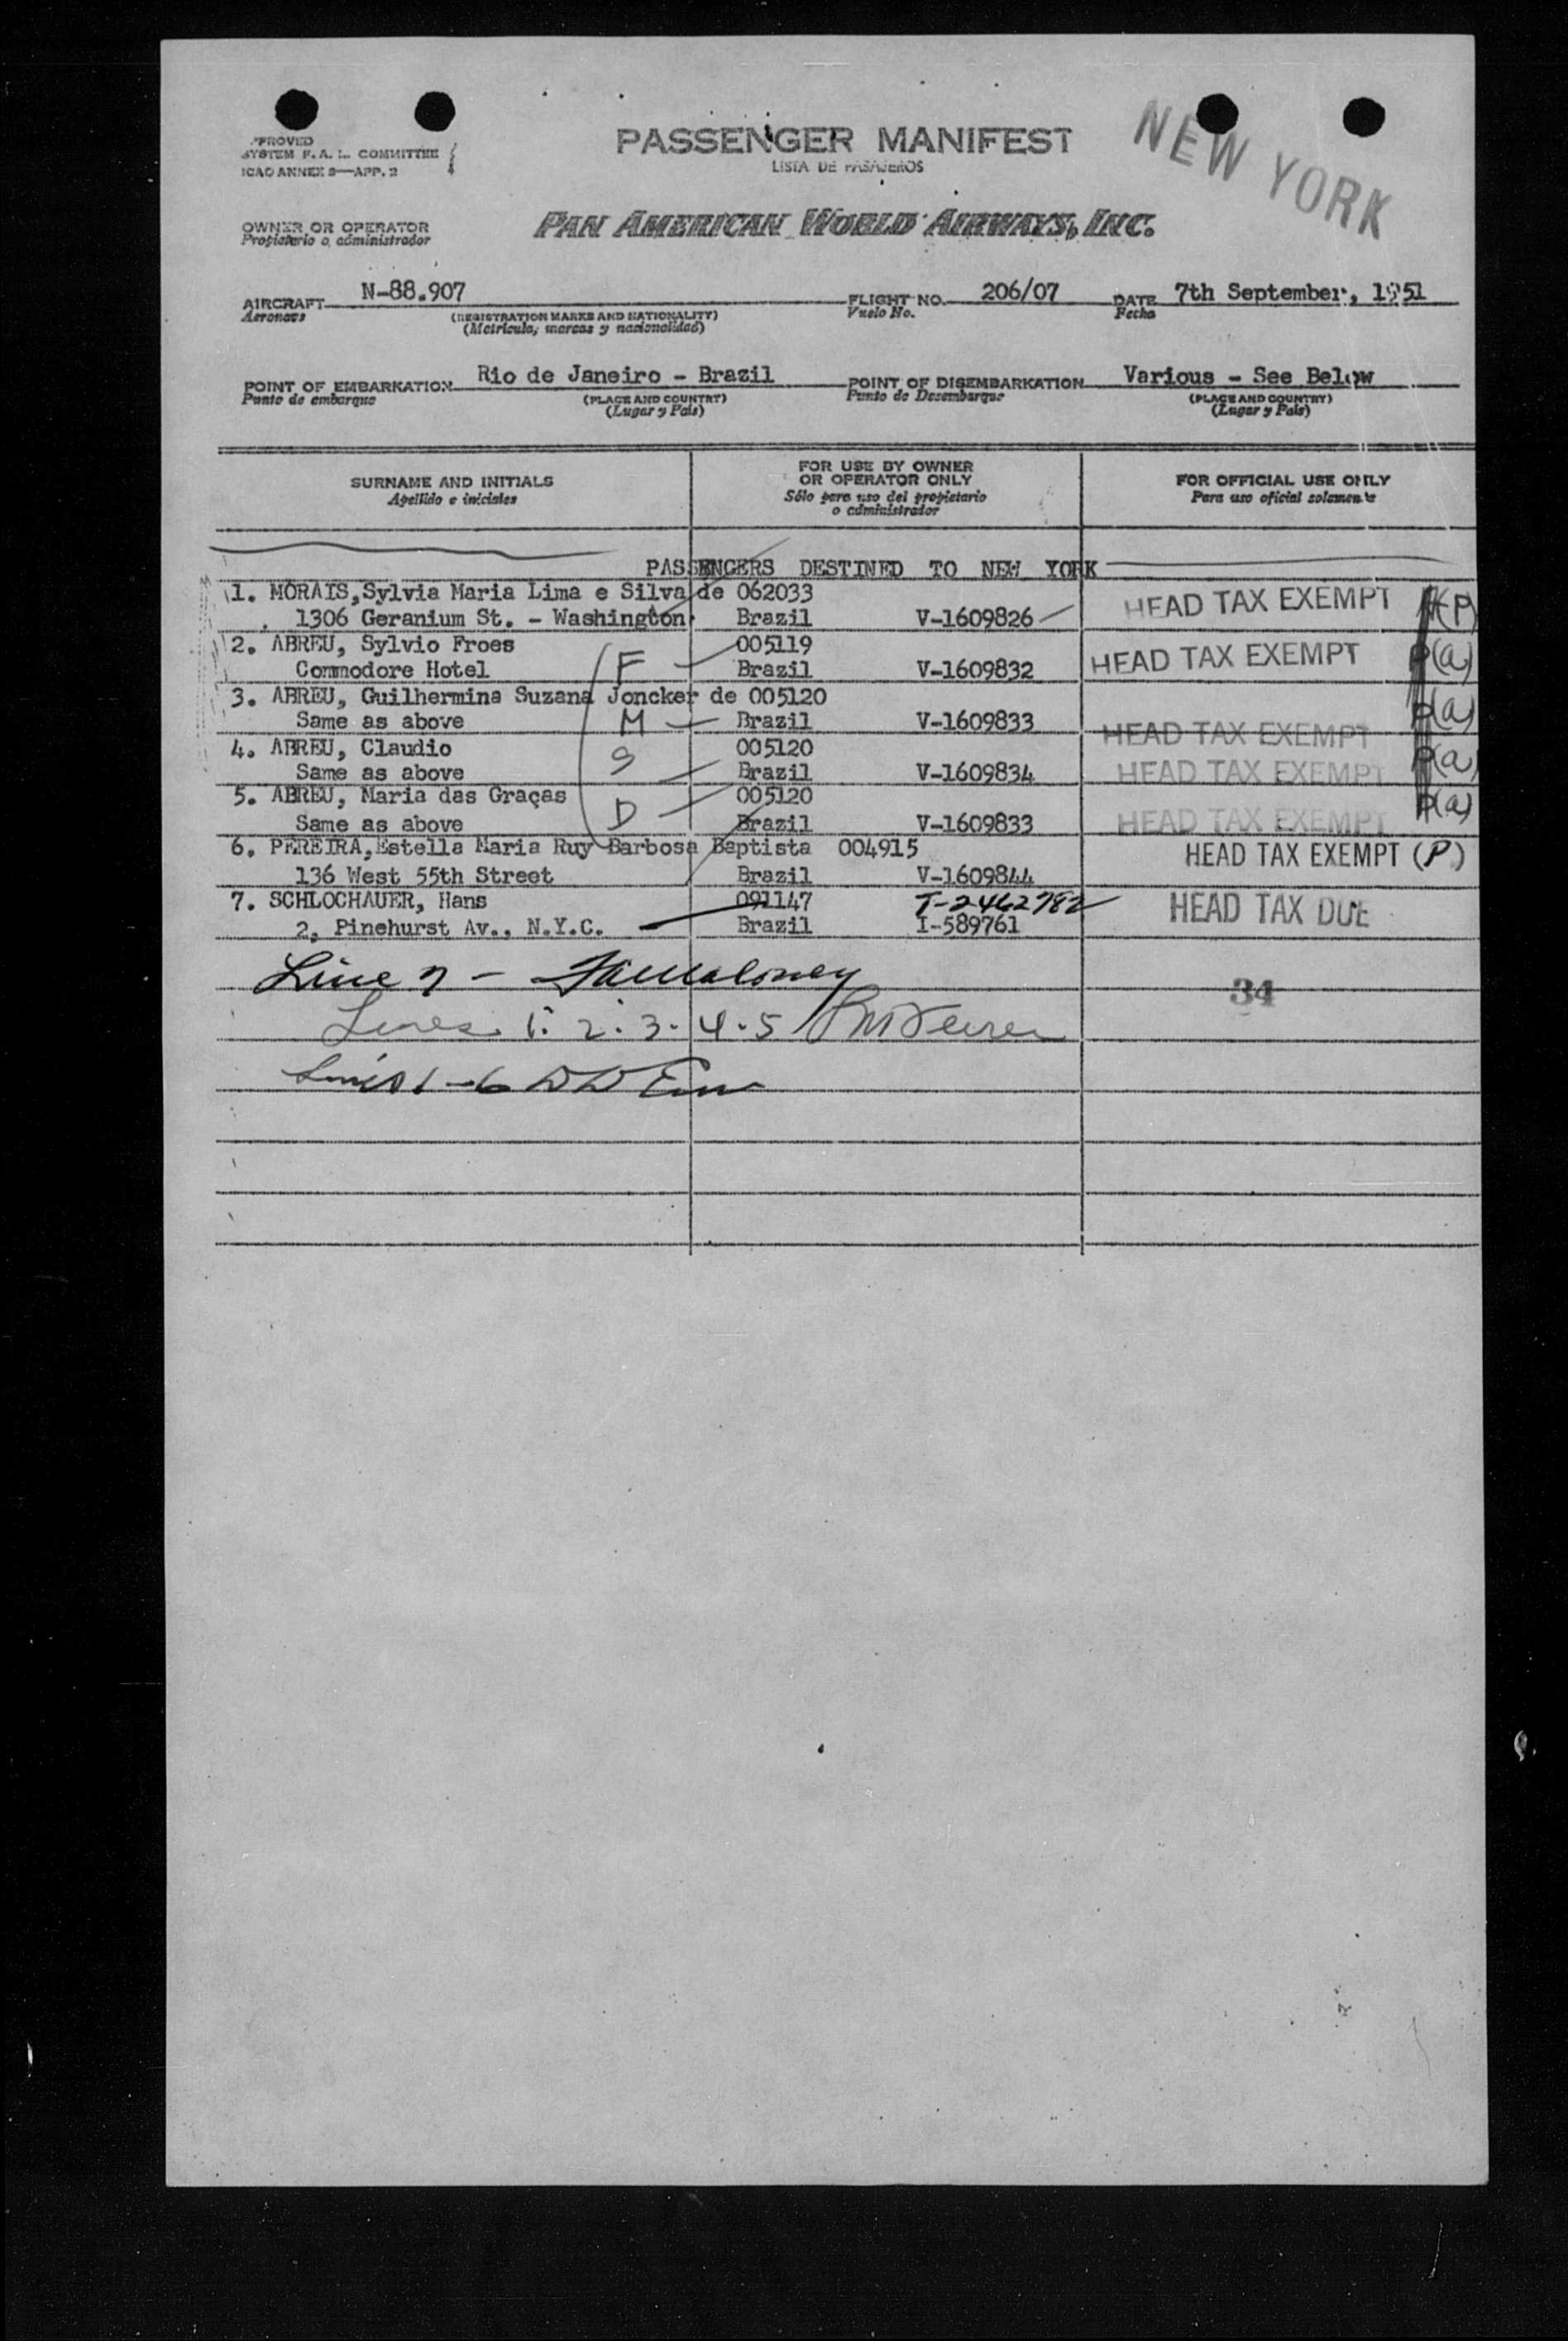 PPROVED
SYSTEM F. A. L. COMMITTEE
ICAO ANNEX 9—APP. 2
PASSENGER MANIFEST
LISTA DE PASAJEROS
NEW YORK
OWNER OR OPERATOR
Propietario o administrador
PAN AMERICAN WORLD AIRWAYS, INC.
AIRCRAFT N-88.907 FLIGHT NO. 206/07 DATE 7th September, 1951
Aeronave (REGISTRATION MARKS AND NATIONALITY) Vuelo No. Fecha
(Matrícula, marcas y nacionalidad)
POINT OF EMBARKATION Rio de Janeiro - Brazil POINT OF DISEMBARKATION Various - See Below
Punto de embarque (PLACE AND COUNTRY) Punto de Desembarque (PLACE AND COUNTRY)
(Lugar y País) (Lugar y País)
SURNAME AND INITIALS FOR USE BY OWNER OR OPERATOR ONLY FOR OFFICIAL USE ONLY
Apellido e iniciales Sólo para uso del propietario o administrador Para uso oficial solamente
PASSENGERS DESTINED TO NEW YORK
1. MORAIS,Sylvia Maria Lima e Silva de 062033
1306 Geranium St. - Washington Brazil V-1609826 HEAD TAX EXEMPT (P)
2. ABREU, Sylvio Froes 005119
Commodore Hotel F Brazil V-1609832 HEAD TAX EXEMPT (a)
3. ABREU, Guilhermina Suzana Joncker de 005120
Same as above M Brazil V-1609833 HEAD TAX EXEMPT (a)
4. ABREU, Claudio 005120
Same as above S Brazil V-1609834 HEAD TAX EXEMPT (a)
5. ABREU, Maria das Graças 005120
Same as above D Brazil V-1609833 HEAD TAX EXEMPT (a)
6. PEREIRA,Estella Maria Ruy Barbosa Baptista 004915
136 West 55th Street Brazil V-1609844 HEAD TAX EXEMPT (P)
7. SCHLOCHAUER, Hans 091147 T-2462782
2, Pinehurst Av., N.Y.C. Brazil I-589761 HEAD TAX DUE
Line 7 -
34
Lines 1. 2. 3. 4. 5
Lines 1-6